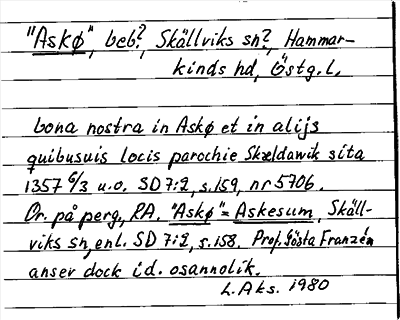 "Askø", beb?, Skällviks sn?, Hammar-
kinds hd, Östg.L.
bona nostra in Askø et in alijs
quibusuis locis parochie Skældawik sita
1357 6/3 u.o. SD 7:2, s.159, nr 5706.
Or. på perg., RA. "Askø" = Askesum, Skäll-
viks sn, enl. SD 7:2, s.158. Prof. Gösta Franzén
anser dock id. osannolik.
L.Aks. 1980